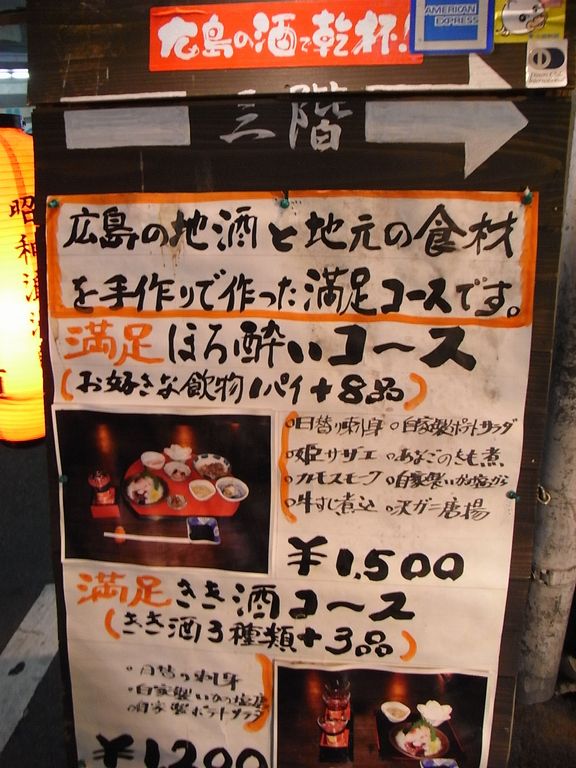 広島の酒で乾杯!
AMERICAN EXPRESS
Diners Club International
三階
昭和
広島の地酒と地元の食材
を手作りで作った満足コースです。
満足ほろ酔いコース
(お好きな飲物1パイ+8品)
○日替り刺身 ○自家製ポテトサラダ
○姫サザエ ○あなごのきも煮
○カモスモーク ○自家製いか塩から
○牛すじ煮込 ○沢ガニ唐揚
¥1,500
満足きき酒コース
(きき酒3種類+3品)
○日替り刺身
○自家製いか塩辛
○自家製ポテトサラダ
¥1,200